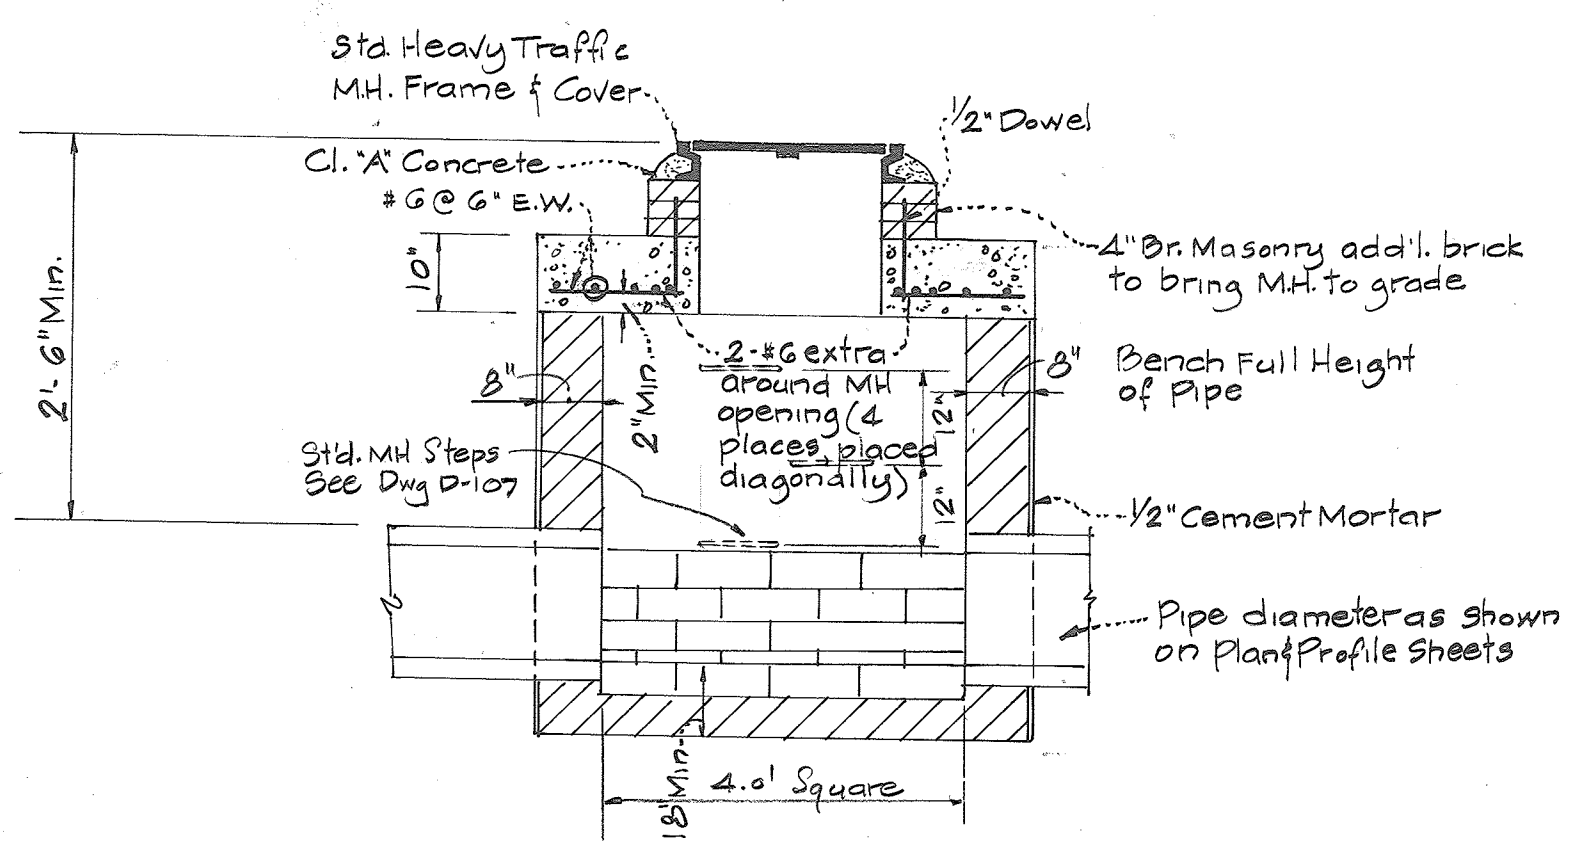 Std. Heavy Traffic
M.H. Frame & Cover
1/2" Dowel
Cl. "A" Concrete
#6 @ 6" E.W.
10"
2'-6" Min.
4" Br. Masonry add'l. brick
to bring M.H. to grade
2-#6 extra
around MH
opening (4
places placed
diagonally)
8"
2" Min.
12"
12"
8"
Bench Full Height
of Pipe
St'd. MH Steps
See Dwg D-107
1/2" Cement Mortar
Pipe diameter as shown
on Plan & Profile Sheets
18" Min.
4.0' Square